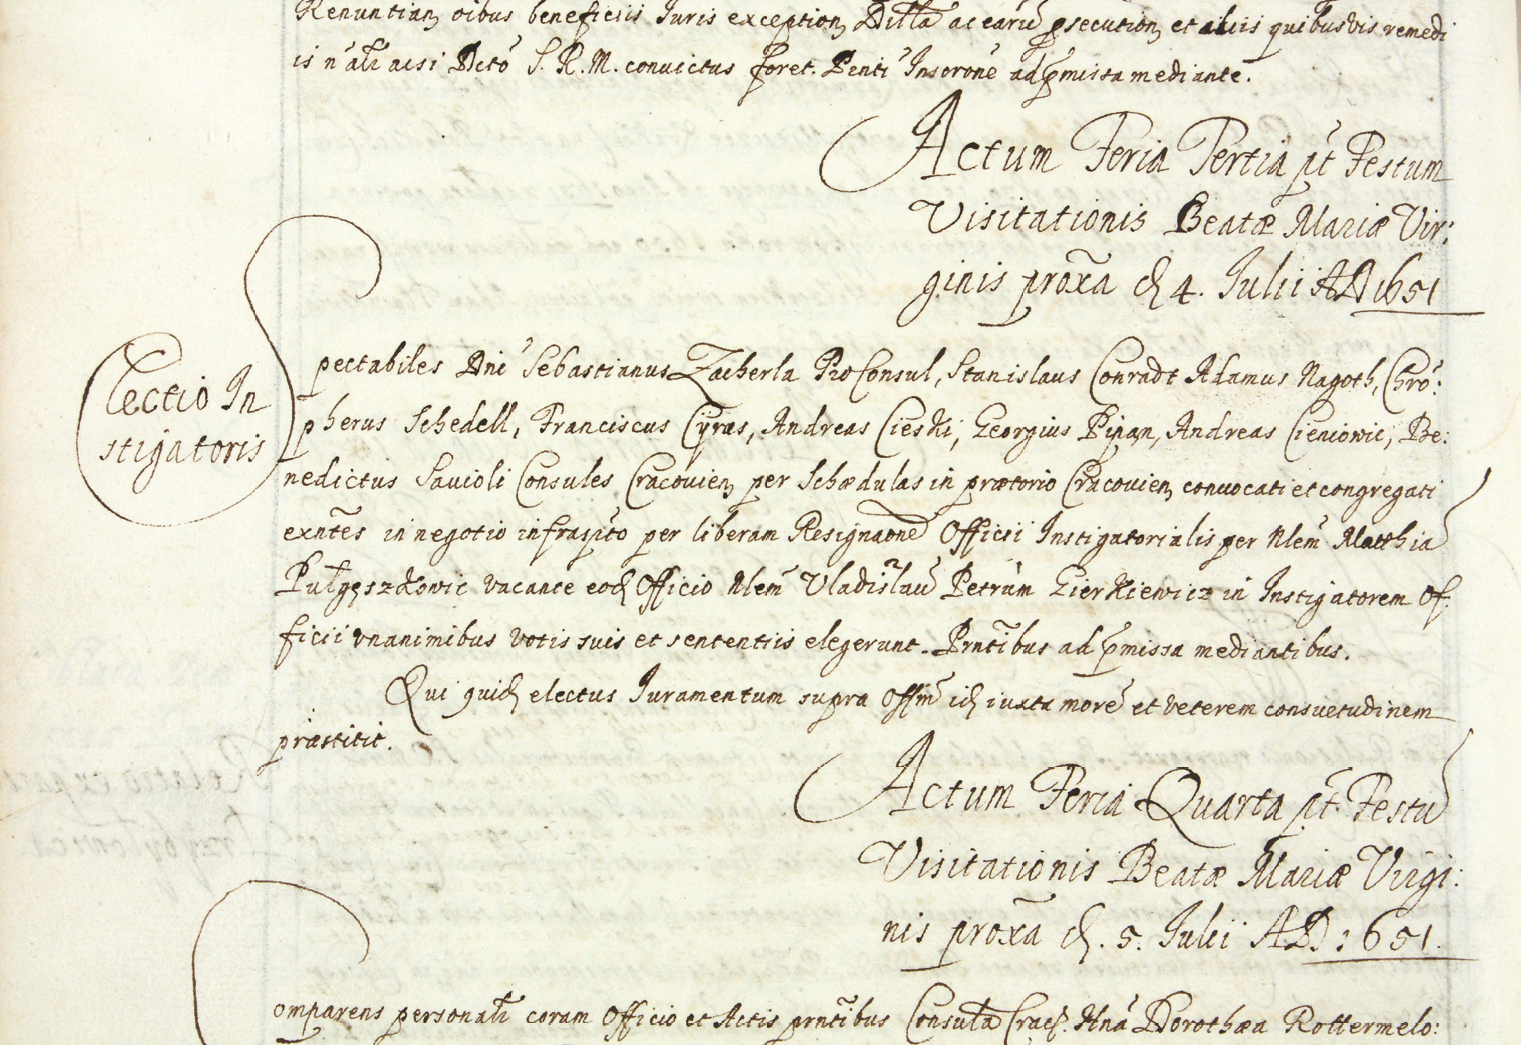 Renuntian oibus beneficiis Iuris exception Dilla ac earu psecution et aliis quibusvis remedi
is n ali acsi Dcto S. R. M. convictus foret. Penti Insorone ad pmissa mediante.
Actum Feria Tertia pt Festum
Visitationis Beatæ Mariæ Vir:
ginis proxa d 4. Iulii AD 1651
Electio In
stigatoris
Spectabiles Dni Sebastianus Zacherla ProConsul, Stanislaus Conradt Adamus Nagoth, Chro:
pherus Schedell, Franciscus Cyrus, Andreas Cieski, Georgius Pipan, Andreas Cieniowic, Be:
nedictus Savioli Consules Cracovien per Schædulas in prætorio Cracovien convocati et congregati
exntes in negotio infrasptο per liberam Resignaone Officii Instigatorialis per Nlem Matthia
Pulgęszkowic vacante eod Officio Nlem Vladislau Petrum Gierkiewicz in Instigatorem Of:
ficii unanimibus votis suis et sententiis elegerunt. Prntibus ad pmissa mediantibus.
Qui quid electus Iuramentum supra Offm id iuxta more et veterem consuetudinem
præstitit.
Actum Feria Quarta pt Festu
Visitationis Beatæ Mariæ Virgi:
nis proxa d. 5. Iulii AD: 651.
Comparens personali coram Officio et Actis prntibus Consula Crac. Hna Dorothæa Rottermelo: